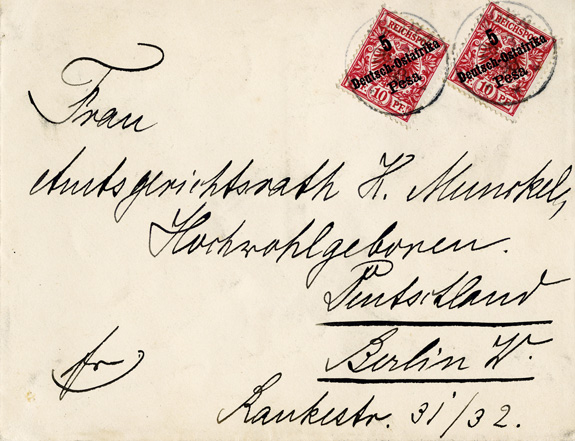 REICHSPOST
5
Deutsch-Ostafrika
Pesa
10 PF
REICHSPOST
5
Deutsch-Ostafrika
Pesa
10 PF
Frau
Amtsgerichtsrath H. Munckel,
Hochwohlgeboren.
Deutschland
Berlin W.
fr
Rankestr. 31/32.